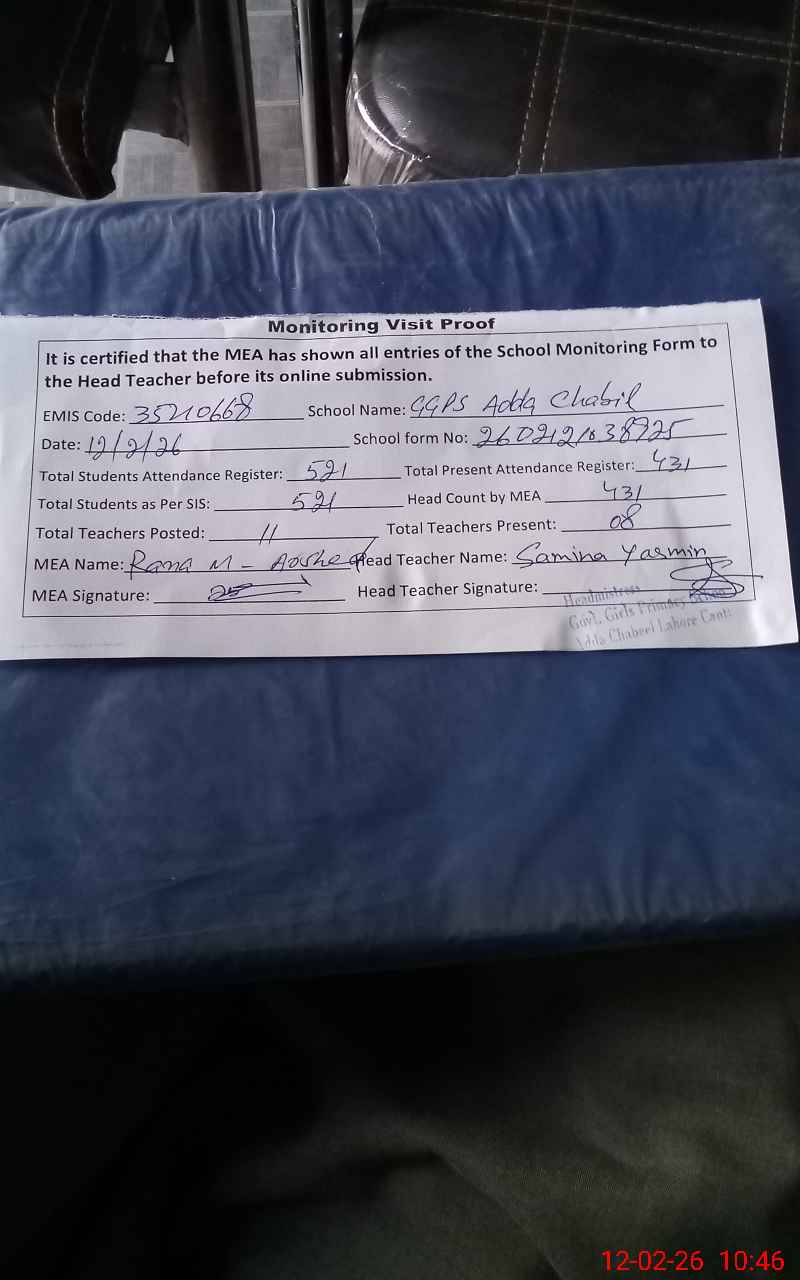 Monitoring Visit Proof
It is certified that the MEA has shown all entries of the School Monitoring Form to
the Head Teacher before its online submission.
EMIS Code: 35210668 School Name: GGPS Adda Chabil
Date: 12/2/26 School form No:
Total Students Attendance Register: 521 Total Present Attendance Register: 431
Total Students as Per SIS: 521 Head Count by MEA 431
Total Teachers Posted: 11 Total Teachers Present: 08
MEA Name: Rana M - Head Teacher Name: Samina Yasmin
MEA Signature: Head Teacher Signature:
Headmistress
Govt. Girls Primary School
Adda Chabeel Lahore Cantt:
12-02-26 10:46